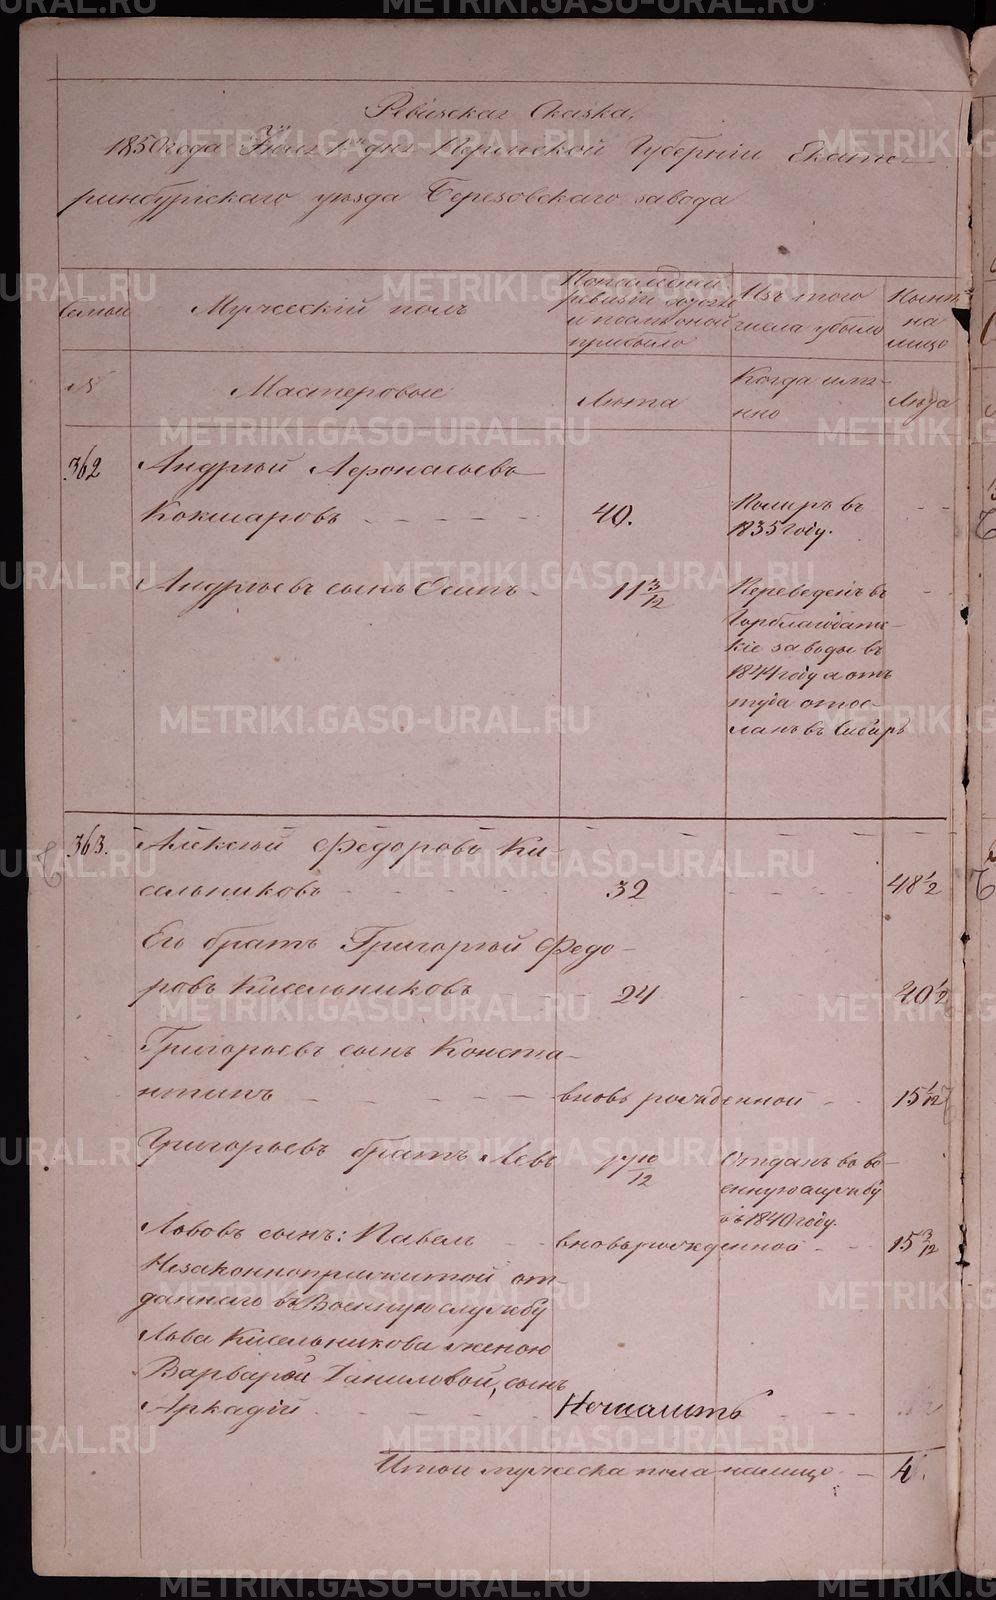 Ревизская Сказка,
1850 года Июня 1 дня Пермской Губернiи Екате-
ринбургскаго уѣзда Березовскаго завода
Семьи
Мужескiй полъ
По последней ревизiи состояло и послѣ оной прибыло
Изъ того числа убыло
Нынѣ на лицо
№
Мастеровые
Лѣта
Когда имя-
нно
Лѣта
362
Андрей Афонасьевъ
Кокшаровъ - - - - -
40.
Померъ въ
1835 году.
- -
Андреевъ сынъ Осипъ -
11 3/12
Переведенъ въ
Горблагодатс-
кiе заводы въ
1844 году а отъ
туда отос-
ланъ въ Сибирь
-
363.
Алексѣй Федоровъ Ки-
сельниковъ - - - -
32
- - - -
48 1/2
Его братъ Григорiй Федо-
ровъ Кисельниковъ - -
24
- -
40 1/2
Григорьевъ сынъ Конста-
нтинъ - - - - -
вновь рожденной - -
15 1/12
Григорьевъ братъ Левъ
/12
Отданъ во во-
енную службу
въ 1840 году.
Львовъ сынъ: Павелъ - -
вновьрожденной - - -
15 3/12
Незаконноприжитой от-
даннаго въ Военную службу
Льва Кисельникова женою
Варварой Даниловой, сынъ
Аркадiй - - - - -
Не числить - - -
Итого мужеска пола налицо - 4.
METRIKI.GASO-URAL.RU